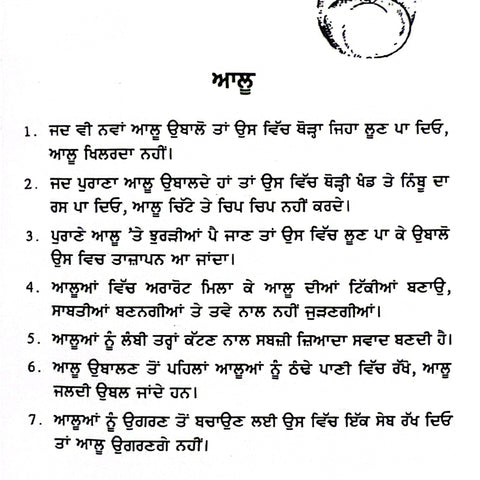 ਆਲੂ
1. ਜਦ ਵੀ ਨਵਾਂ ਆਲੂ ਉਬਾਲੋ ਤਾਂ ਉਸ ਵਿੱਚ ਥੋੜ੍ਹਾ ਜਿਹਾ ਲੂਣ ਪਾ ਦਿਓ,
ਆਲੂ ਖਿਲਰਦਾ ਨਹੀਂ।
2. ਜਦ ਪੁਰਾਣਾ ਆਲੂ ਉਬਾਲਦੇ ਹਾਂ ਤਾਂ ਉਸ ਵਿੱਚ ਥੋੜ੍ਹੀ ਖੰਡ ਤੇ ਨਿੰਬੂ ਦਾ
ਰਸ ਪਾ ਦਿਓ, ਆਲੂ ਚਿੱਟੇ ਤੇ ਚਿਪ ਚਿਪ ਨਹੀਂ ਕਰਦੇ।
3. ਪੁਰਾਣੇ ਆਲੂ 'ਤੇ ਝੁਰੜੀਆਂ ਪੈ ਜਾਣ ਤਾਂ ਉਸ ਵਿੱਚ ਲੂਣ ਪਾ ਕੇ ਉਬਾਲੋ
ਉਸ ਵਿਚ ਤਾਜ਼ਾਪਨ ਆ ਜਾਂਦਾ।
4. ਆਲੂਆਂ ਵਿੱਚ ਅਰਾਰੋਟ ਮਿਲਾ ਕੇ ਆਲੂ ਦੀਆਂ ਟਿੱਕੀਆਂ ਬਣਾਉ,
ਸਾਬਤੀਆਂ ਬਣਨਗੀਆਂ ਤੇ ਤਵੇ ਨਾਲ ਨਹੀਂ ਜੁੜਣਗੀਆਂ।
5. ਆਲੂਆਂ ਨੂੰ ਲੰਬੀ ਤਰ੍ਹਾਂ ਕੱਟਣ ਨਾਲ ਸਬਜ਼ੀ ਜ਼ਿਆਦਾ ਸਵਾਦ ਬਣਦੀ ਹੈ।
6. ਆਲੂ ਉਬਾਲਣ ਤੋਂ ਪਹਿਲਾਂ ਆਲੂਆਂ ਨੂੰ ਠੰਢੇ ਪਾਣੀ ਵਿੱਚ ਰੱਖੋ, ਆਲੂ
ਜਲਦੀ ਉਬਲ ਜਾਂਦੇ ਹਨ।
7. ਆਲੂਆਂ ਨੂੰ ਉਗਰਣ ਤੋਂ ਬਚਾਉਣ ਲਈ ਉਸ ਵਿੱਚ ਇੱਕ ਸੇਬ ਰੱਖ ਦਿਓ
ਤਾਂ ਆਲੂ ਉਗਰਣਗੇ ਨਹੀਂ।